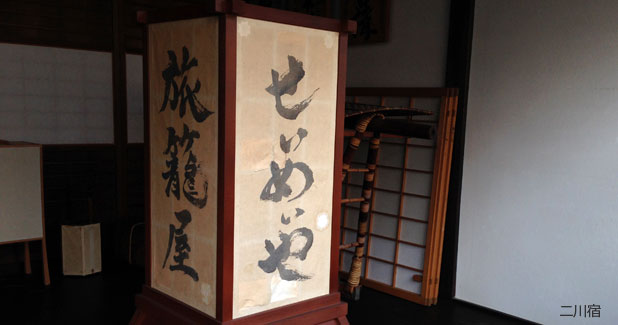 旅籠屋
せいめいや
二川宿